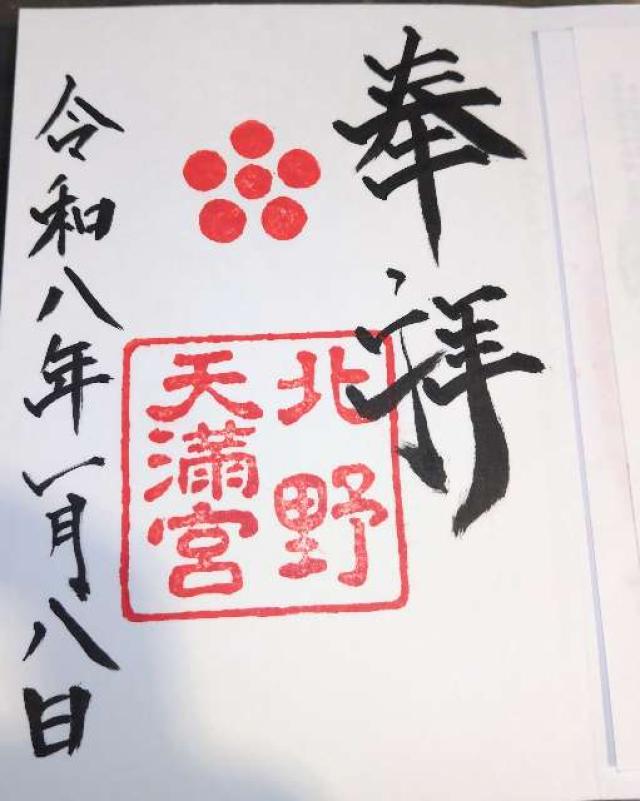 奉拝
北野
天満宮
令和八年一月八日